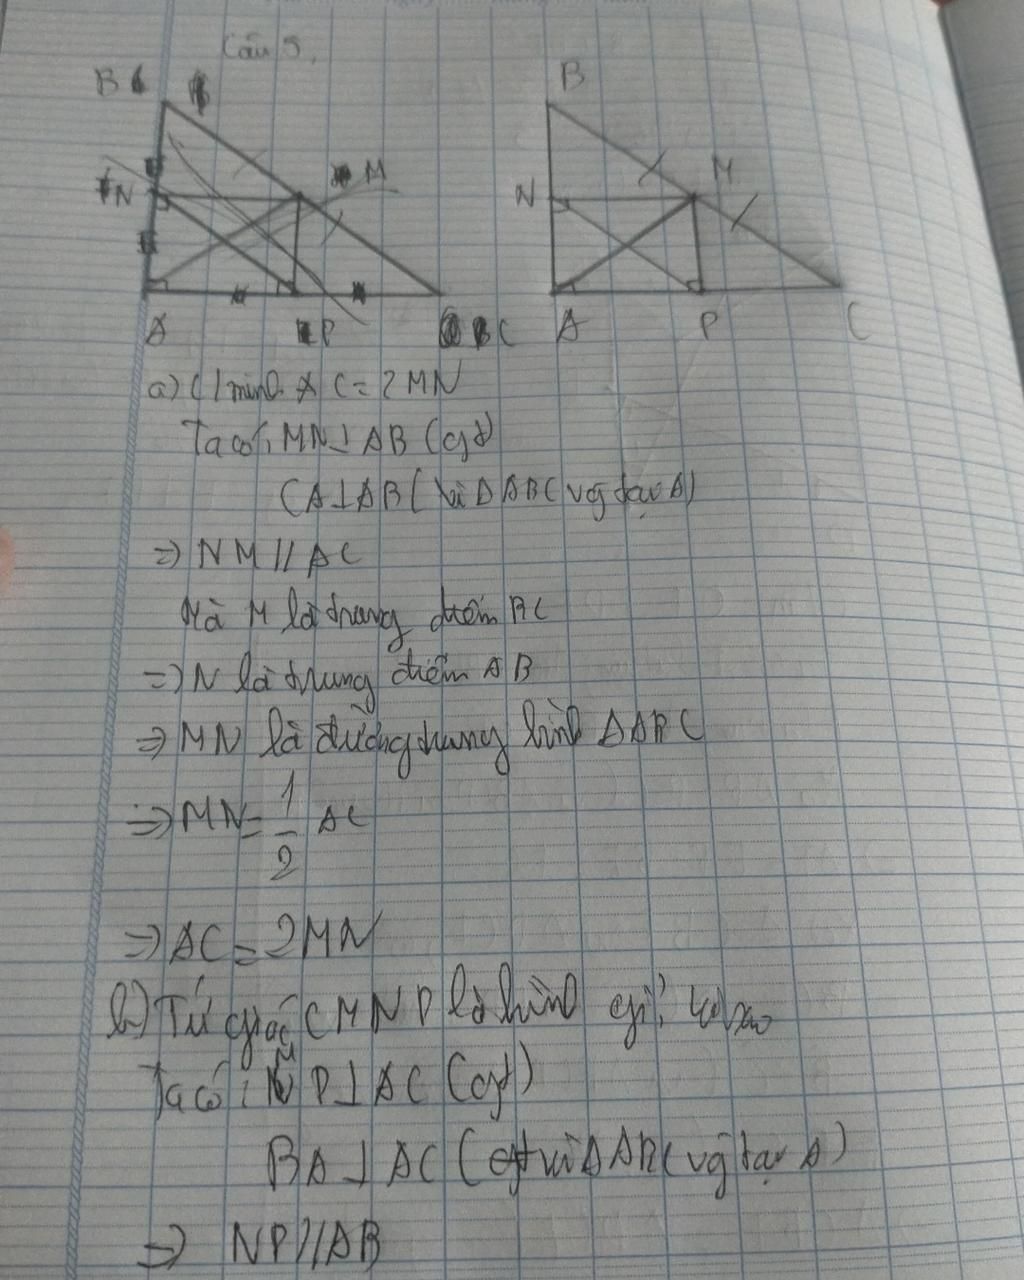 Câu 5,
B B
N M N M
A P C A P C
a) C/minh AC = 2MN
Ta có: MN ⊥ AB (gt)
CA ⊥ AB (vì Δ ABC vg tại A)
=> NM // AC
Mà M là trung điểm BC
=> N là trung điểm AB
=> MN là đường trung bình Δ ABC
=> MN = 1/2 AC
=> AC = 2MN
b) Tứ giác CMNP là hình gì?
Ta có: MP ⊥ AC (gt)
BA ⊥ AC (vì Δ ABC vg tại A)
=> NP // AB